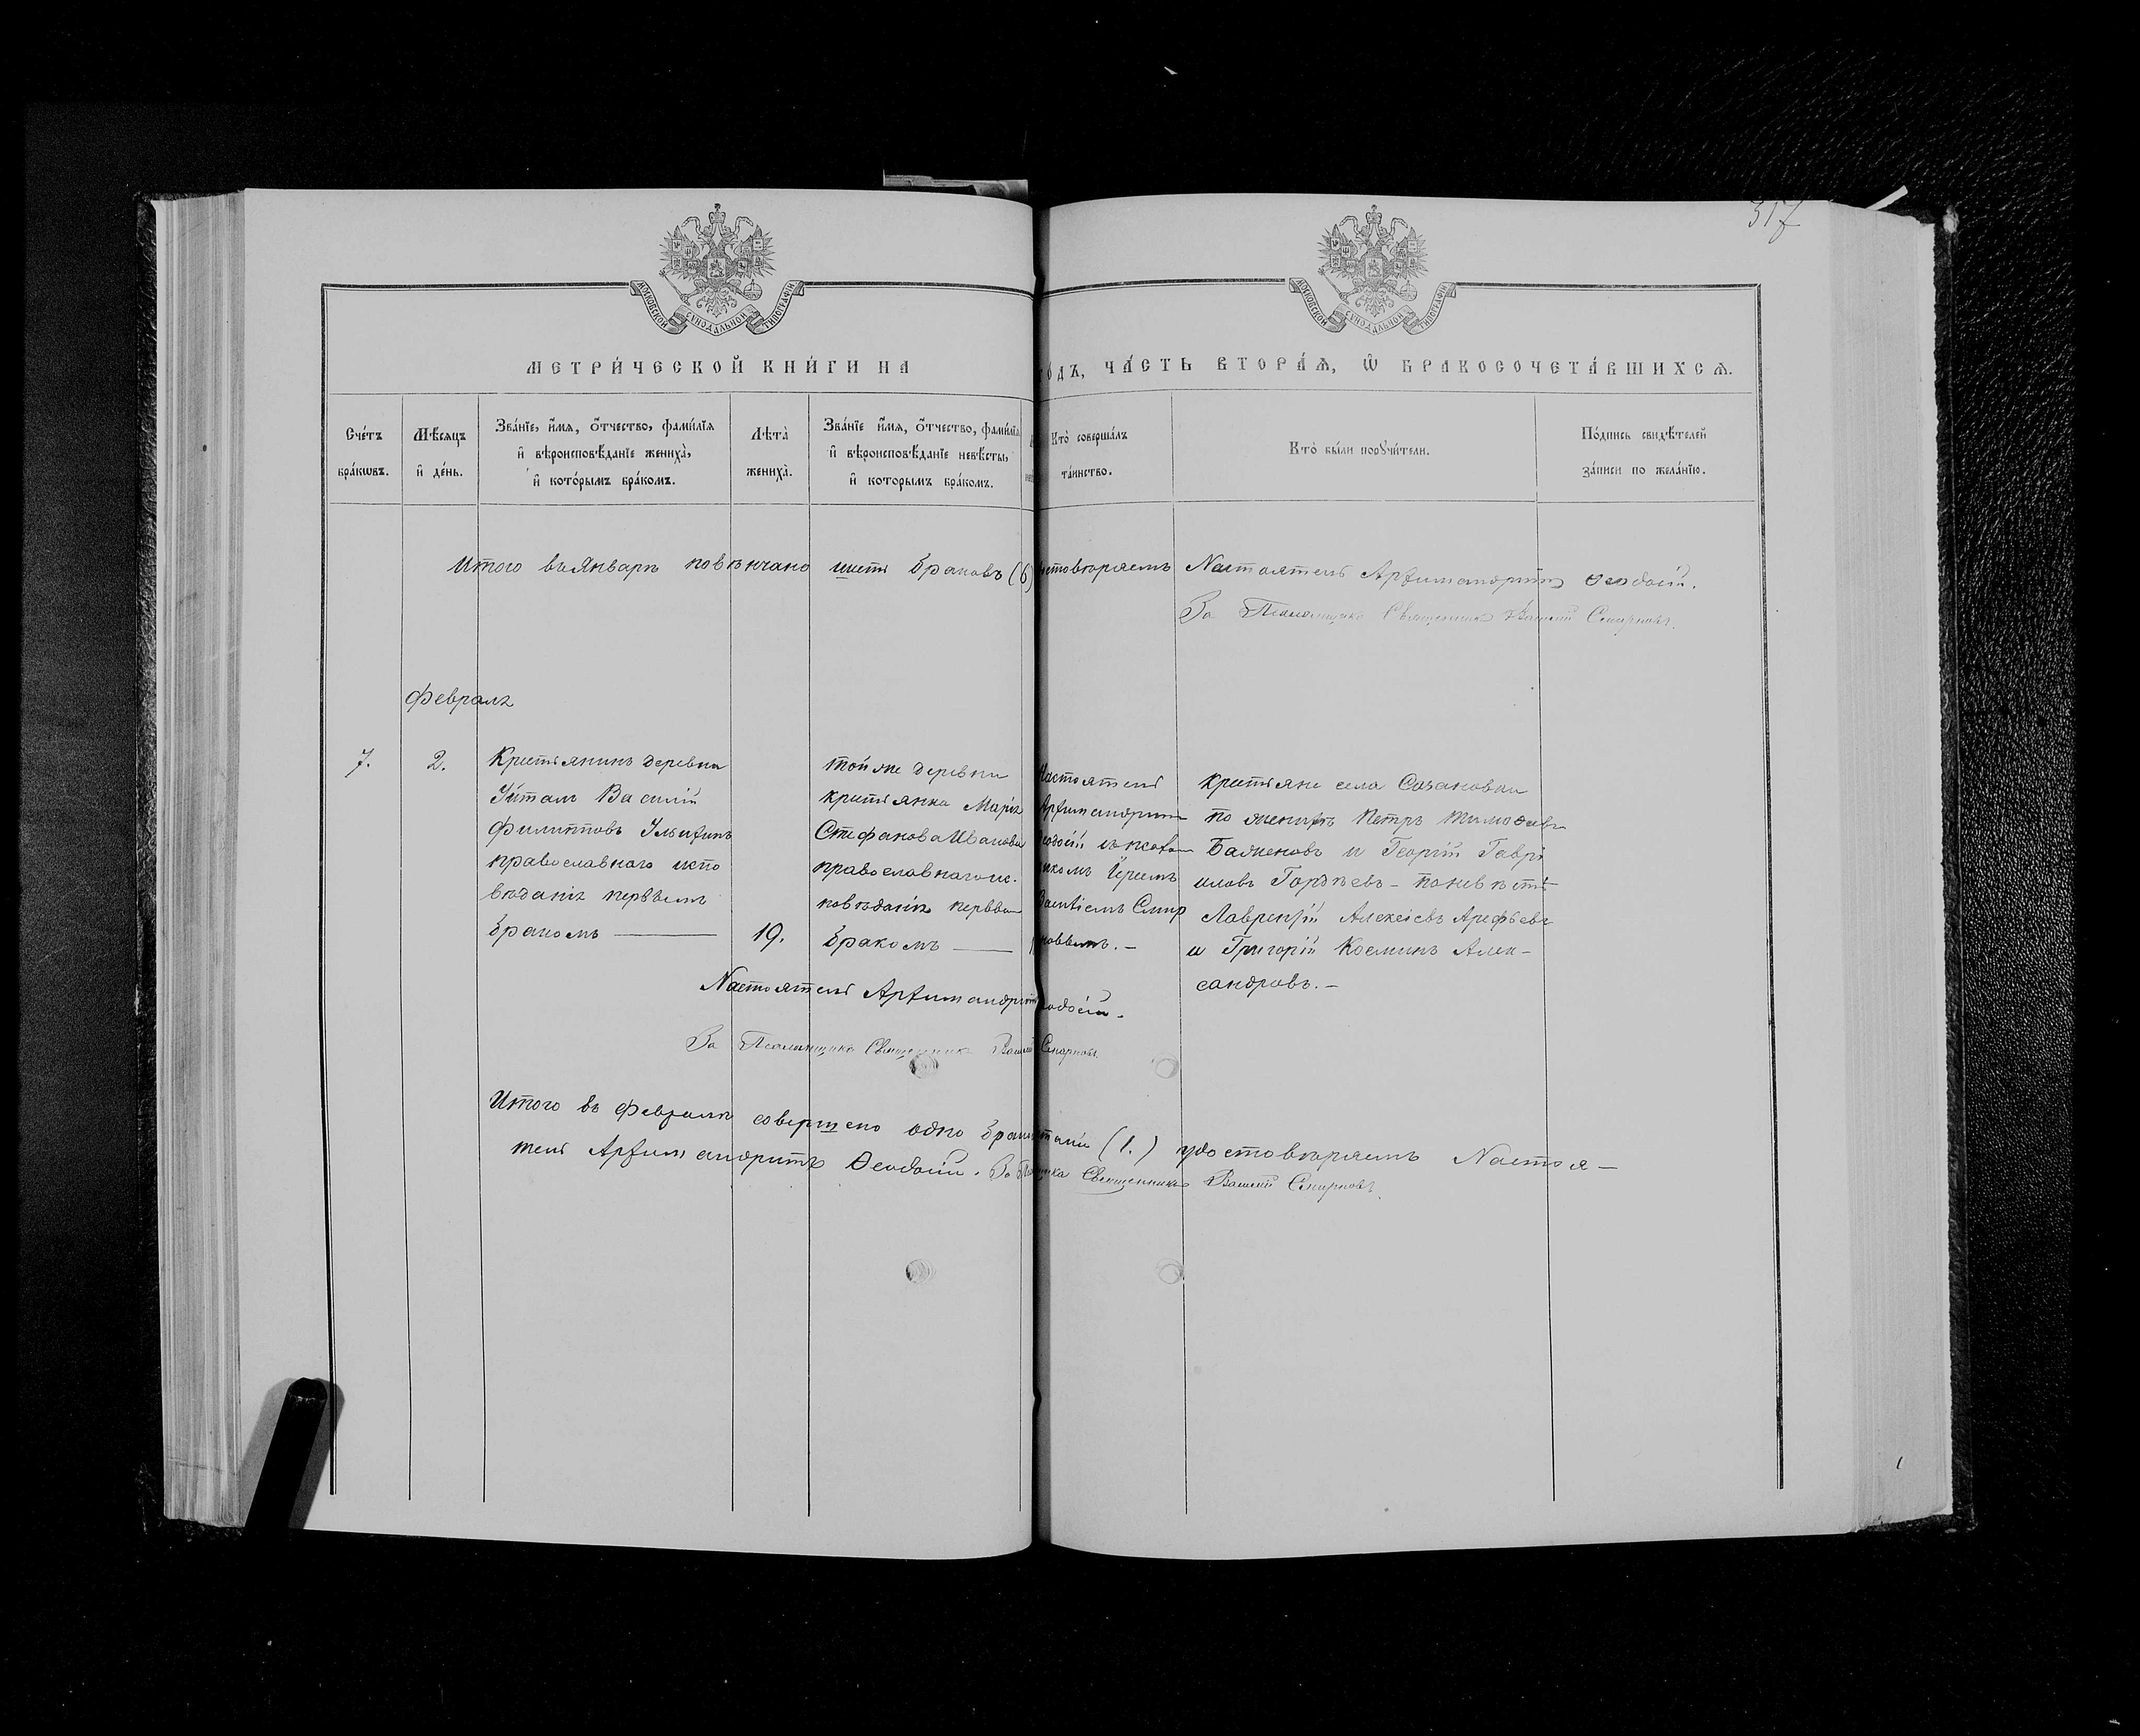 317
МОСКОВСКОЙ СУНОДАЛЬНОЙ ТИПОГРАФІИ
МОСКОВСКОЙ СУНОДАЛЬНОЙ ТИПОГРАФІИ
МЕТРИ́ЧЕСКОЙ КНИ́ГИ НА
ГО́ДЪ, ЧА́СТЬ ВТОРА́Ѧ, Ѡ҆ БРАКОСОЧЕТА́ВШИХСѦ.
Сче́тъ
бра́кѡвъ.
Мѣ́сяцъ
и҆ де́нь.
Зва́нїе, и҆́мѧ, ѻ҆́тчество, фами́лїѧ
и҆ вѣроисповѣ́данїе жениха̀,
и҆ кото́рымъ бра́комъ.
Лѣта̀
жениха̀.
Зва́нїе и҆́мѧ, ѻ҆́тчество, фами́лїѧ
и҆ вѣроисповѣ́данїе невѣ́сты,
и҆ которымъ бра́комъ.
Кто̀ соверша́лъ
та́инство.
Кто̀ бы́ли порꙋчи́тели.
По́дпись свидѣ́телей
за́писи по жела́нїю.
Итого въ Январѣ повѣнчано шесть браковъ (6) стовѣряемъ Настоятель Архимандритъ Ѳеодосій.
За Псаломщика Священникъ Василій Смирновъ.
Февраль
7.
2.
Крестьянинъ деревни
Василій
Филипповъ
православнаго испо
вѣданія первымъ
бракомъ
19.
той же деревни
крестьянка Марія
Стефанова Иванова
православнаго ис.
повѣданія первым
бракомъ
Настоятель
Архимандрит
Ѳеодосій съ псалом
щикомъ Іереемъ
Василіемъ Смир
новымъ.-
Крестьяне села Созановки
по женихѣ Петръ Тимоѳеевъ
Баженовъ и Георгій Гаврі
иловъ Гордѣевъ - по невѣстѣ
Лаврентій Алексіевъ Арефьевъ
и Григорій Косминъ Алек-
сандровъ.-
Настоятель Архимандритъ Ѳеодосій.
За Псаломщика Священникъ Василій Смирновъ.
Итого въ Февралѣ совершено одно бракосочетаніе (1.) удостовѣряемъ Настоя-
тель Архимандритъ Ѳеодосій. За Псаломщика Священникъ Василій Смирновъ.